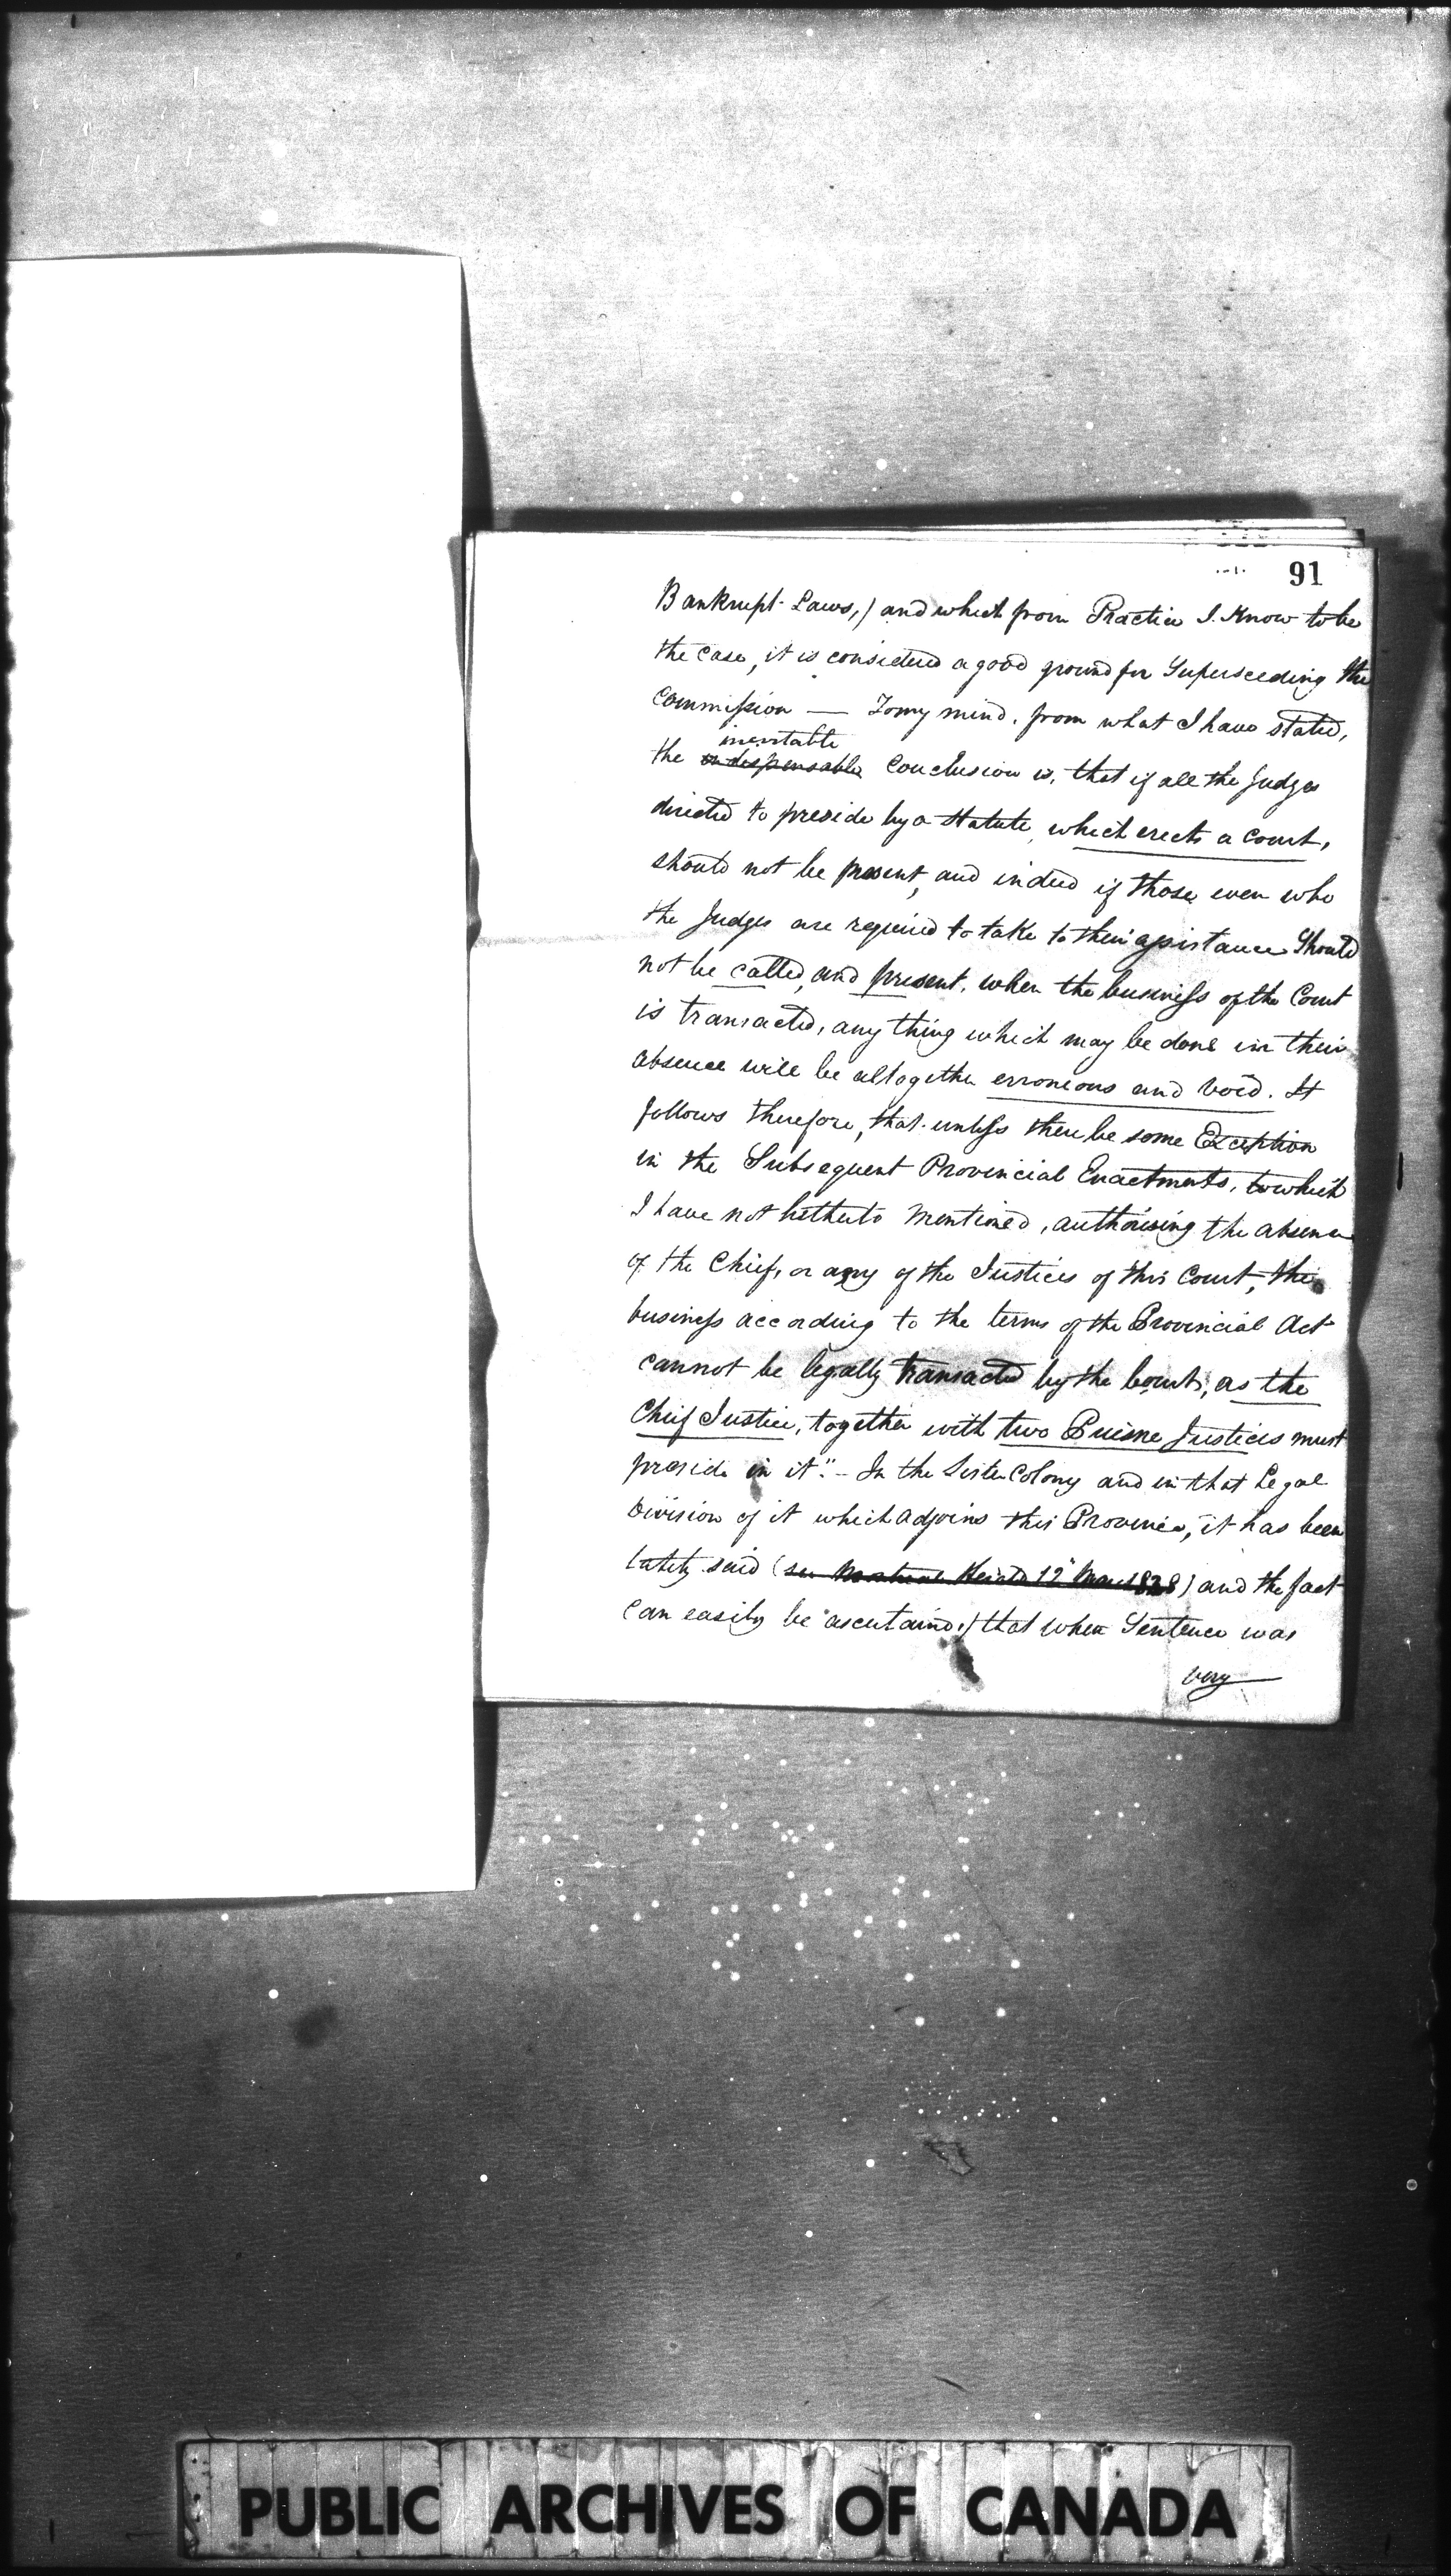 91
Bankrupt Laws,) and which from Practice I Know to be
the case, it is considered a good ground for Superseeding the
Commission — To my mind, from what I have stated,
inevitable
the indispensable Conclusion is, that if all the Judges
directed to preside by a Statute, which erects a Court,
should not be present, and indeed if those even who
the Judges are required to take to their assistance Should
not be called, and present, when the business of the Court
is transacted, any thing which may be done in their
absence will be altogether erroneous and void. It
follows therefore, that unless there be some Exception
in the Subsequent Provincial Enactments, to which
I have not hitherto Mentioned, authorising the absence
of the Chief, or any of the Justices of this Court, the
business according to the terms of the Provincial Act
cannot be legally transacted by the Court, as the
Chief Justice, together with two Puisne Justices must
preside in it." - In the Sister Colony and in that Legal
Division of it which adjoins this Province, it has been
lately said (see Montreal Herald 12th Mar 1828) and the fact
can easily be ascertained,) that when Sentence was
very
PUBLIC ARCHIVES OF CANADA